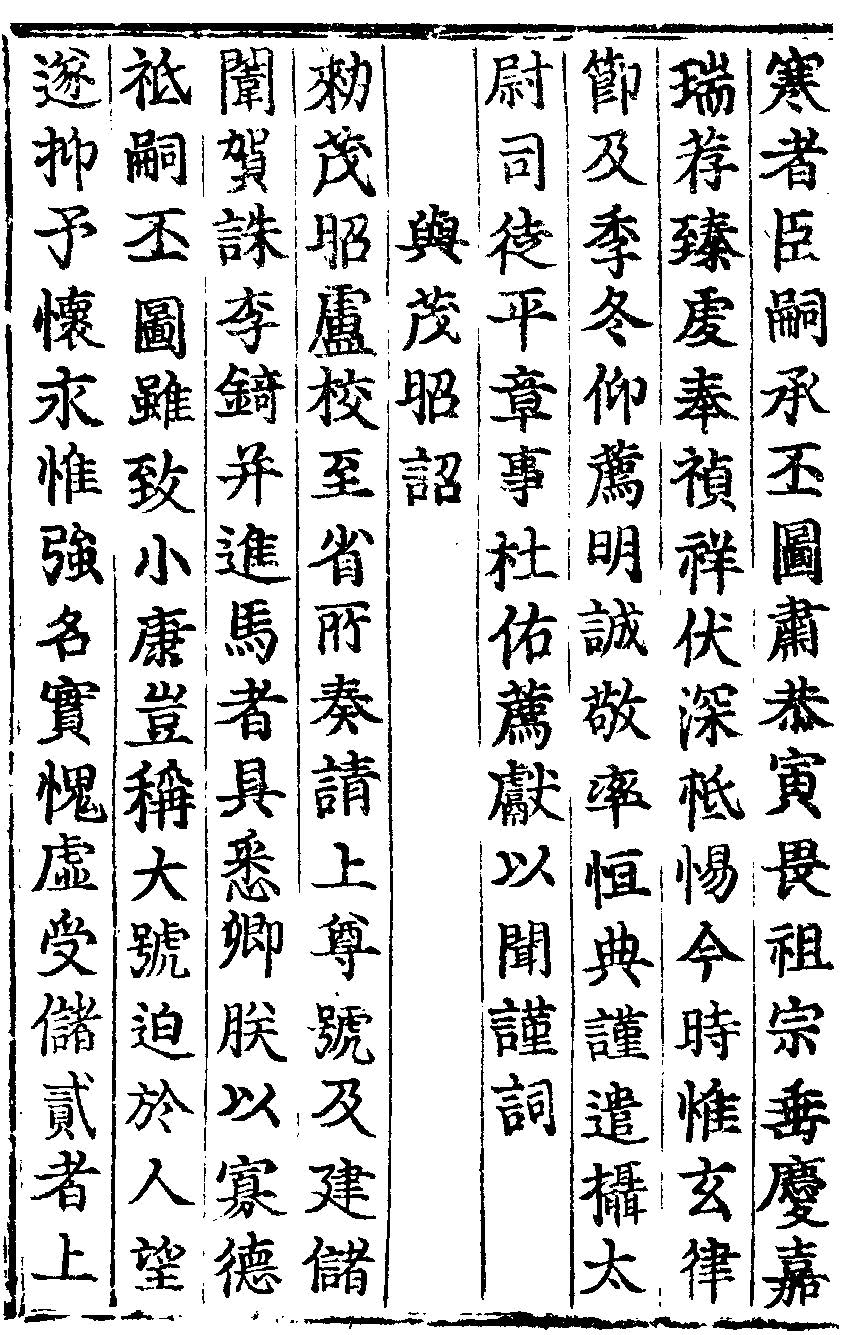 寒者臣嗣承丕圖肅恭寅畏祖宗垂慶嘉
瑞荐臻虔奉禎祥伏深柢惕今時惟玄律
節及季冬仰薦明誠敬率恒典謹遣攝太
尉司徒平章事杜佑薦獻以聞謹詞
與茂昭詔
勑茂昭盧校至省所奏請上尊號及建儲
闈賀誅李錡并進馬者具悉卿朕以寡德
祗嗣丕圖雖致小康豈稱大號迫於人望
遂抑予懷永惟強名實愧虛受儲貳者上